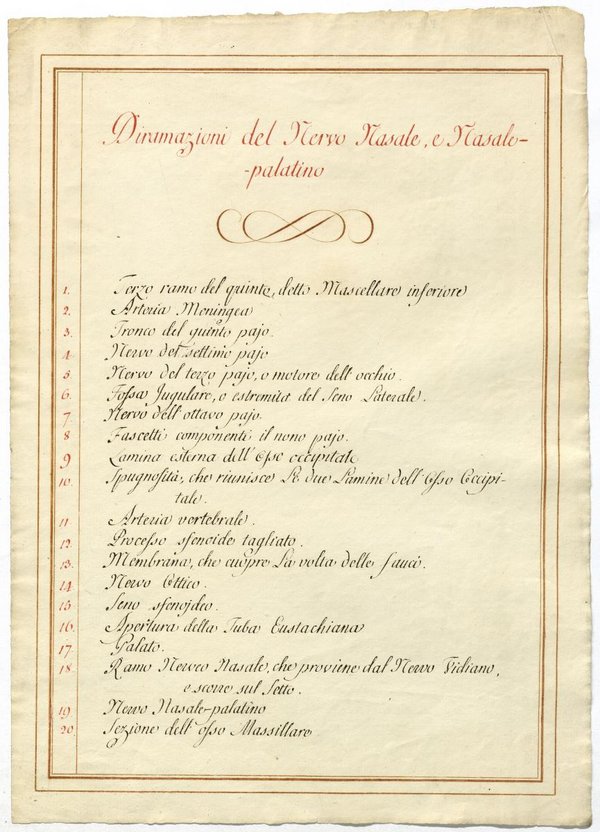 Diramazioni del Nervo Nasale, e Nasale-
-palatino
1. Terzo ramo del quinto, detto Mascellare inferiore
2. Arteria Meningea
3. Tronco del quinto pajo.
4. Nervo del settimo pajo
5. Nervo del terzo pajo, o motore dell'occhio.
6. Fossa Jugulare, o estremità del Seno Laterale.
7. Nervo dell'ottavo pajo.
8 Fascetti componenti il nono pajo.
9 Lamina esterna dell'Osso occipitale
10. Spugnosità, che riunisce Le due Lamine dell'Osso Occipi-
tale.
11 Arteria vertebrale.
12. Processo sfenoide tagliato.
13. Membrana, che cuopre La volta delle fauci.
14 Nervo Ottico.
15 Seno sfenojdeo.
16. Apertura della Tuba Eustachiana
17. Palato.
18 Ramo Nerveo Nasale, che proviene dal Nervo Vidiano,
e scorre sul Setto.
19 Nervo Nasale-palatino
20 Sezione dell'osso Massillare